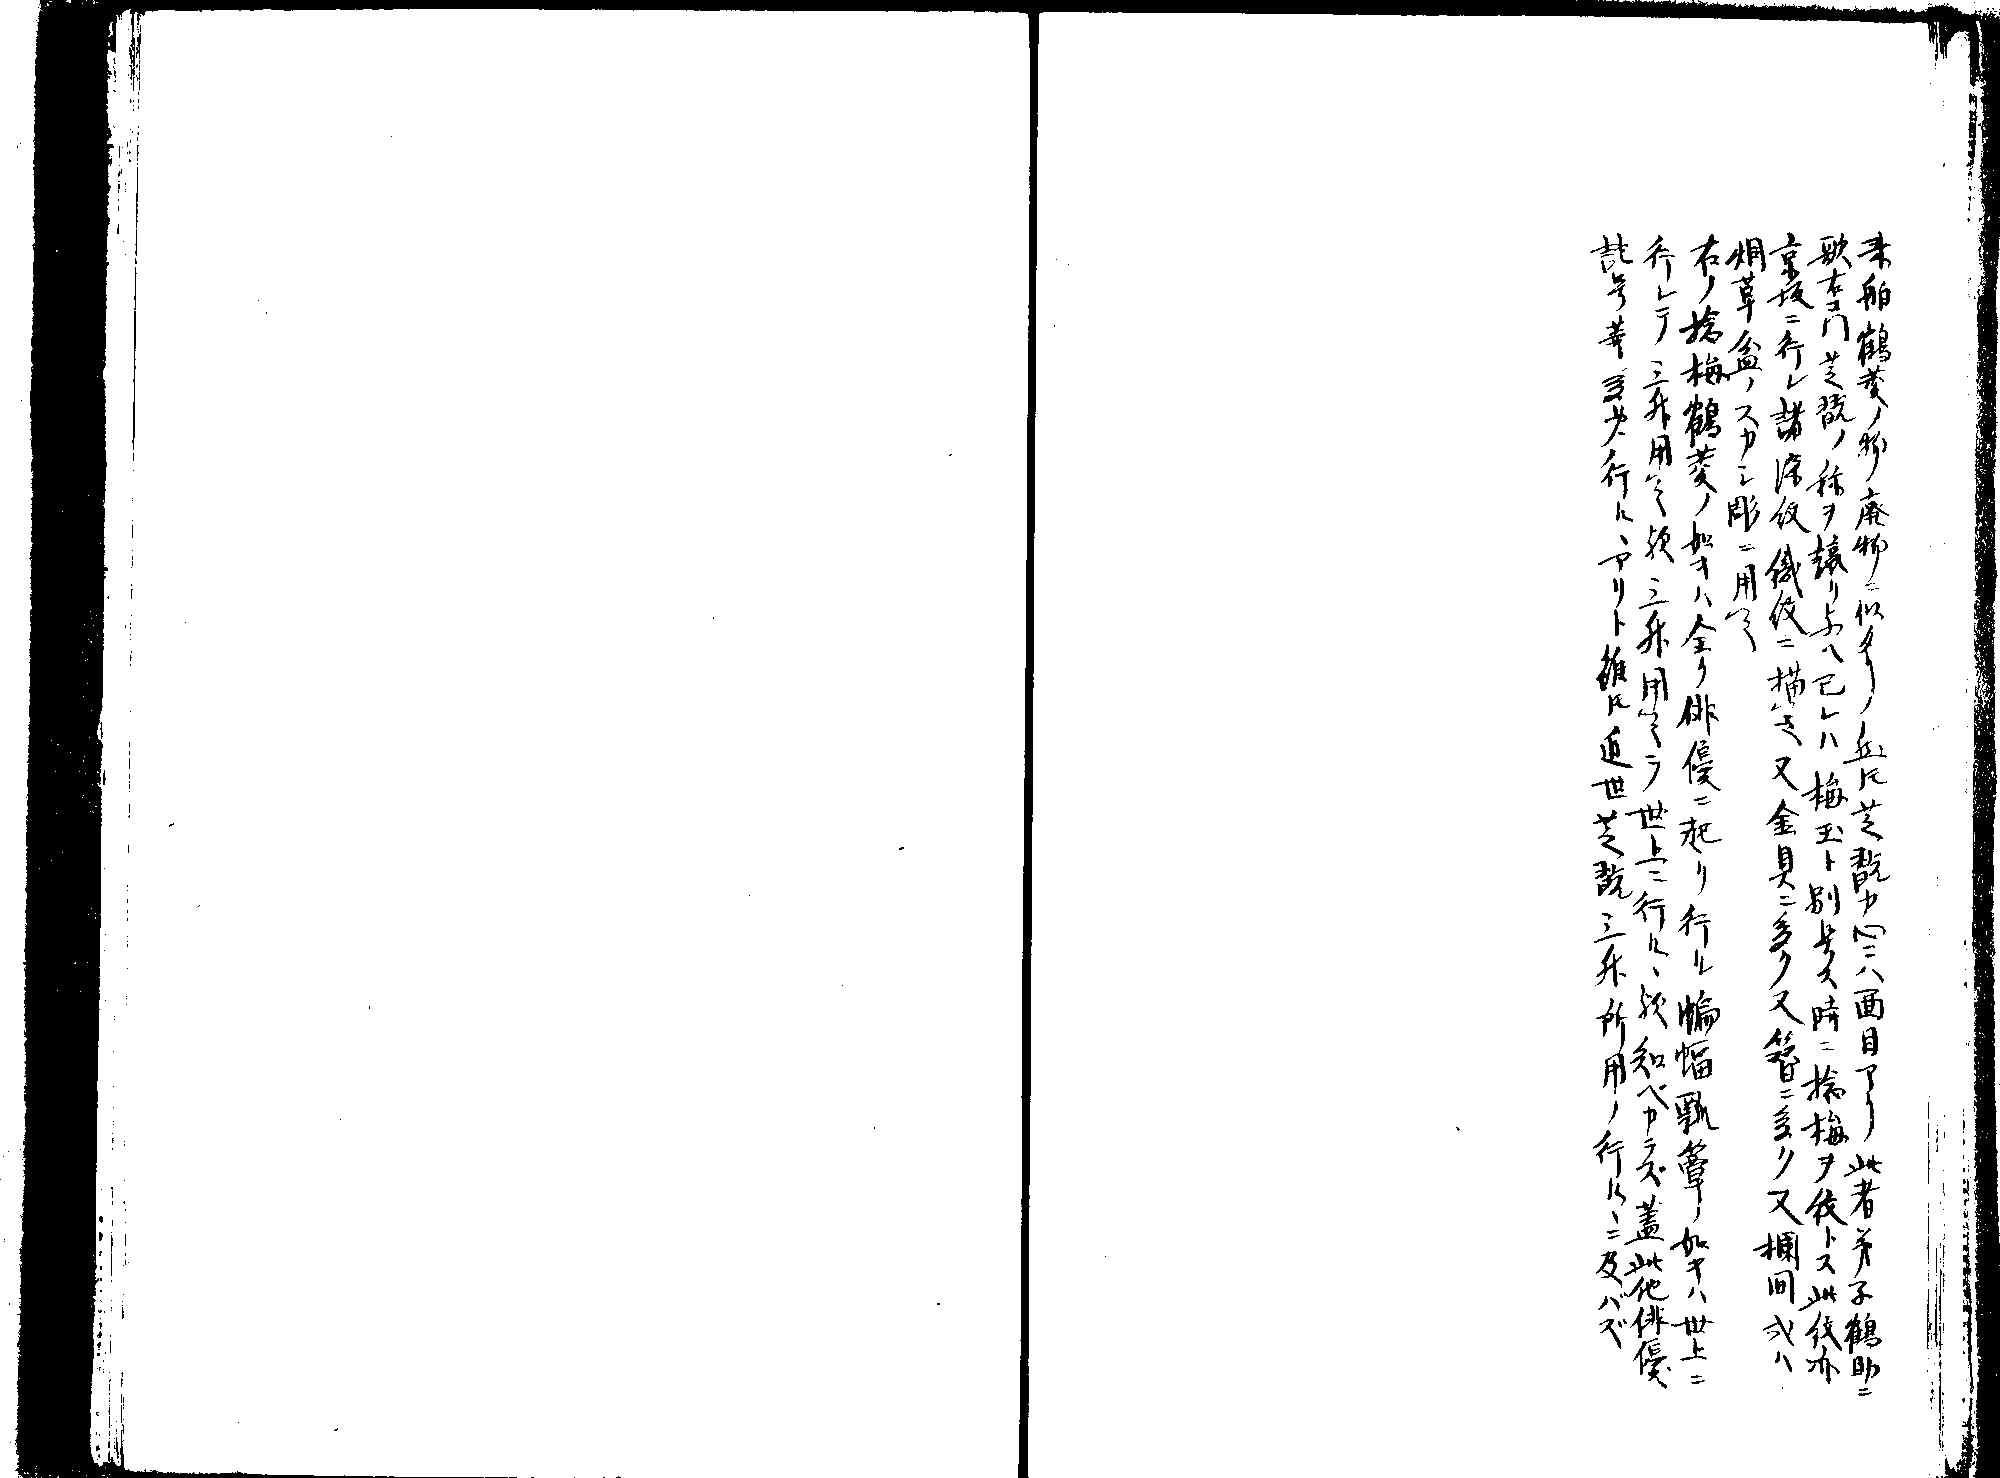 来舶鶴菱ノ物廃物ニ似タリ然ドモ芝翫カ四ニハ面目アリ此者弟子鶴助ニ
歌右衛門芝翫ノ称ヲ譲リ与ヘ已レハ梅玉ト別号ス時ニ捻梅ヲ紋トス此紋亦
京坂ニ行レ諸染紋織紋ニ描キ又金具ニ多ク又簪ニ多ク又欄間或ハ
烟草盆ノスカシ彫ニ用フ
右ノ捻梅鶴菱ノ如キハ全ク俳優ニ起リ行ル蝙蝠瓢箪ノ如キハ世上ニ
行レテ三升用フ歟三升用フテ世上ニ行ルヽ歟知ベカラズ蓋此他俳優
記号等多少行ルヽアリト雖ドモ近世芝翫三升所用ノ行ルヽニ及バズ